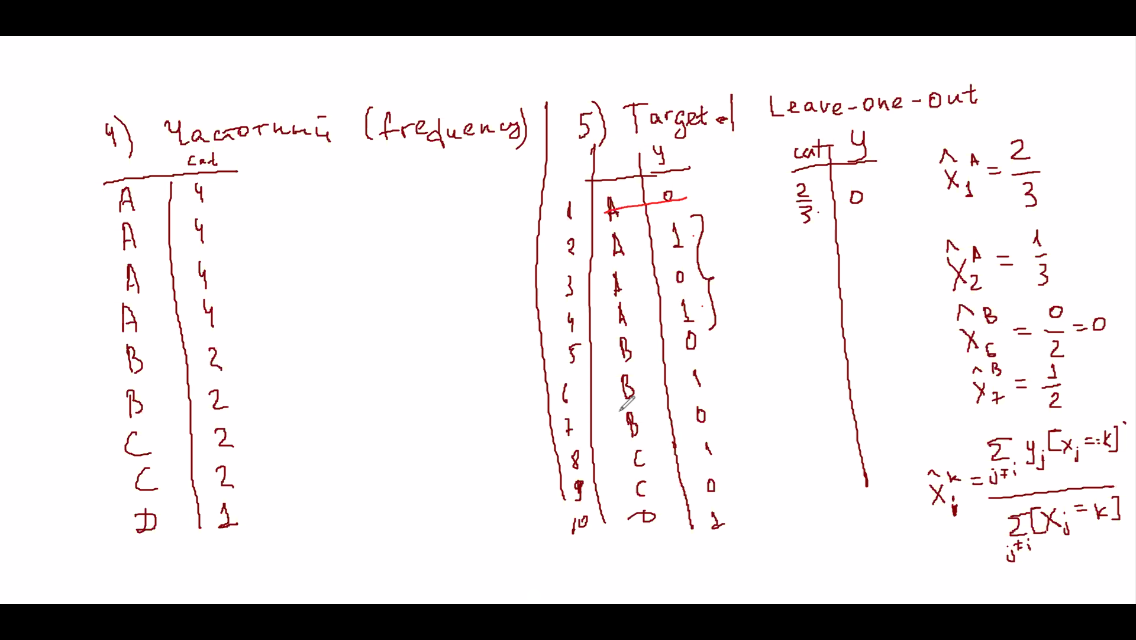 4) Частотный (frequency)
cat
A 4
A 4
A 4
A 4
B 2
B 2
C 2
C 2
D 1
5) Target. Leave-one-out
y
1 A 0
2 A 1
3 A 0
4 A 1
5 B 0
6 B 1
7 B 0
8 C 1
9 C 0
10 D 1
cat y
2/3. 0
x̂₁ᴬ = 2/3
x̂₂ᴬ = 1/3
x̂₆ᴮ = 0/2 = 0
x̂₇ᴮ = 1/2
x̂ᵢᵏ = Σ_{j≠i} yⱼ[xⱼ = k] / Σ_{j≠i} [xⱼ = k]